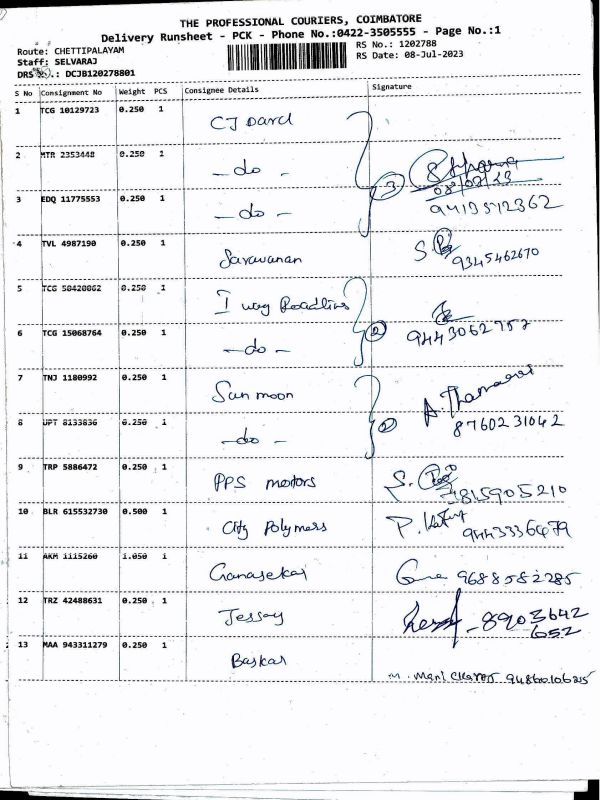 THE PROFESSIONAL COURIERS, COIMBATORE
Delivery Runsheet - PCK - Phone No.:0422-3505555 - Page No.:1
Route: CHETTIPALAYAM RS No.: 1202788
Staff: SELVARAJ RS Date: 08-Jul-2023
DRS No.: DCJB120278801
S No Consignment No Weight PCS Consignee Details Signature
1 TCG 10129723 0.250 1
2 MTR 2353448 0.250 1 -do- 3
3 EDQ 11775553 0.250 1 -do- 9413512362
4 TVL 4987190 0.250 1 Saravanan S. 9345462670
5 TCG 50420862 0.250 1 I way Roadlines
6 TCG 15068764 0.250 1 -do- 2 9443062752
7 TNJ 1180992 0.250 1 Sun moon
8 UPT 8133836 0.250 1 -do- 2 8760231042
9 TRP 5886472 0.250 1 PPS motors S. 7815905210
10 BLR 615532730 0.500 1 City Polymers P. 9443336479
11 AKM 1115260 1.050 1 Ganasekar 9688582285
12 TRZ 42488631 0.250 1 8903642
652
13 MAA 943311279 0.250 1 Baskar